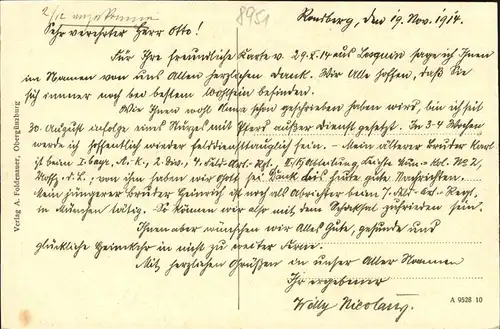 2/12 angekommen
8951
Ronsberg, den 19. Nov. 1914.
Sehr verehrter Herr Otto!
Für Ihre freundliche Karte v. 29.X.14 aus sage ich Ihnen
im Namen von uns Allen herzlichen Dank. Wir Alle hoffen, daß Sie
sich immer noch bei bestem Wohlsein befinden.
Wie Ihnen wohl Anna schon geschrieben haben wird, bin ich seit
30. August infolge eines Sturzes mit Pferd außer Dienst gesetzt. In 3-4 Wochen
werde ich hoffentlich wieder felddiensttauglich sein. – Mein älterer Bruder Karl
ist beim I. bayr. A. K., 2. Div., 4. Feld-Art.-Rgt., II. Abteilung, Leichte Mun.-Kol. No 2,
von ihm haben wir Gott sei Dank bis heute gute Nachrichten.
Mein jüngerer Bruder Heinrich ist noch als beim 7. Feld-Art.-Regt.
in München tätig. So können wir also mit dem Schicksal zufrieden sein.
Ihnen aber wünschen wir Alles Gute, gesunde und
glückliche Heimkehr in nicht zu weiter Ferne.
Mit herzlichen Grüßen in unser Aller Namen
Ihr ergebener
Willy Nicolaus.
Verlag A. Foldenauer, Obergünzburg
A 9528 10